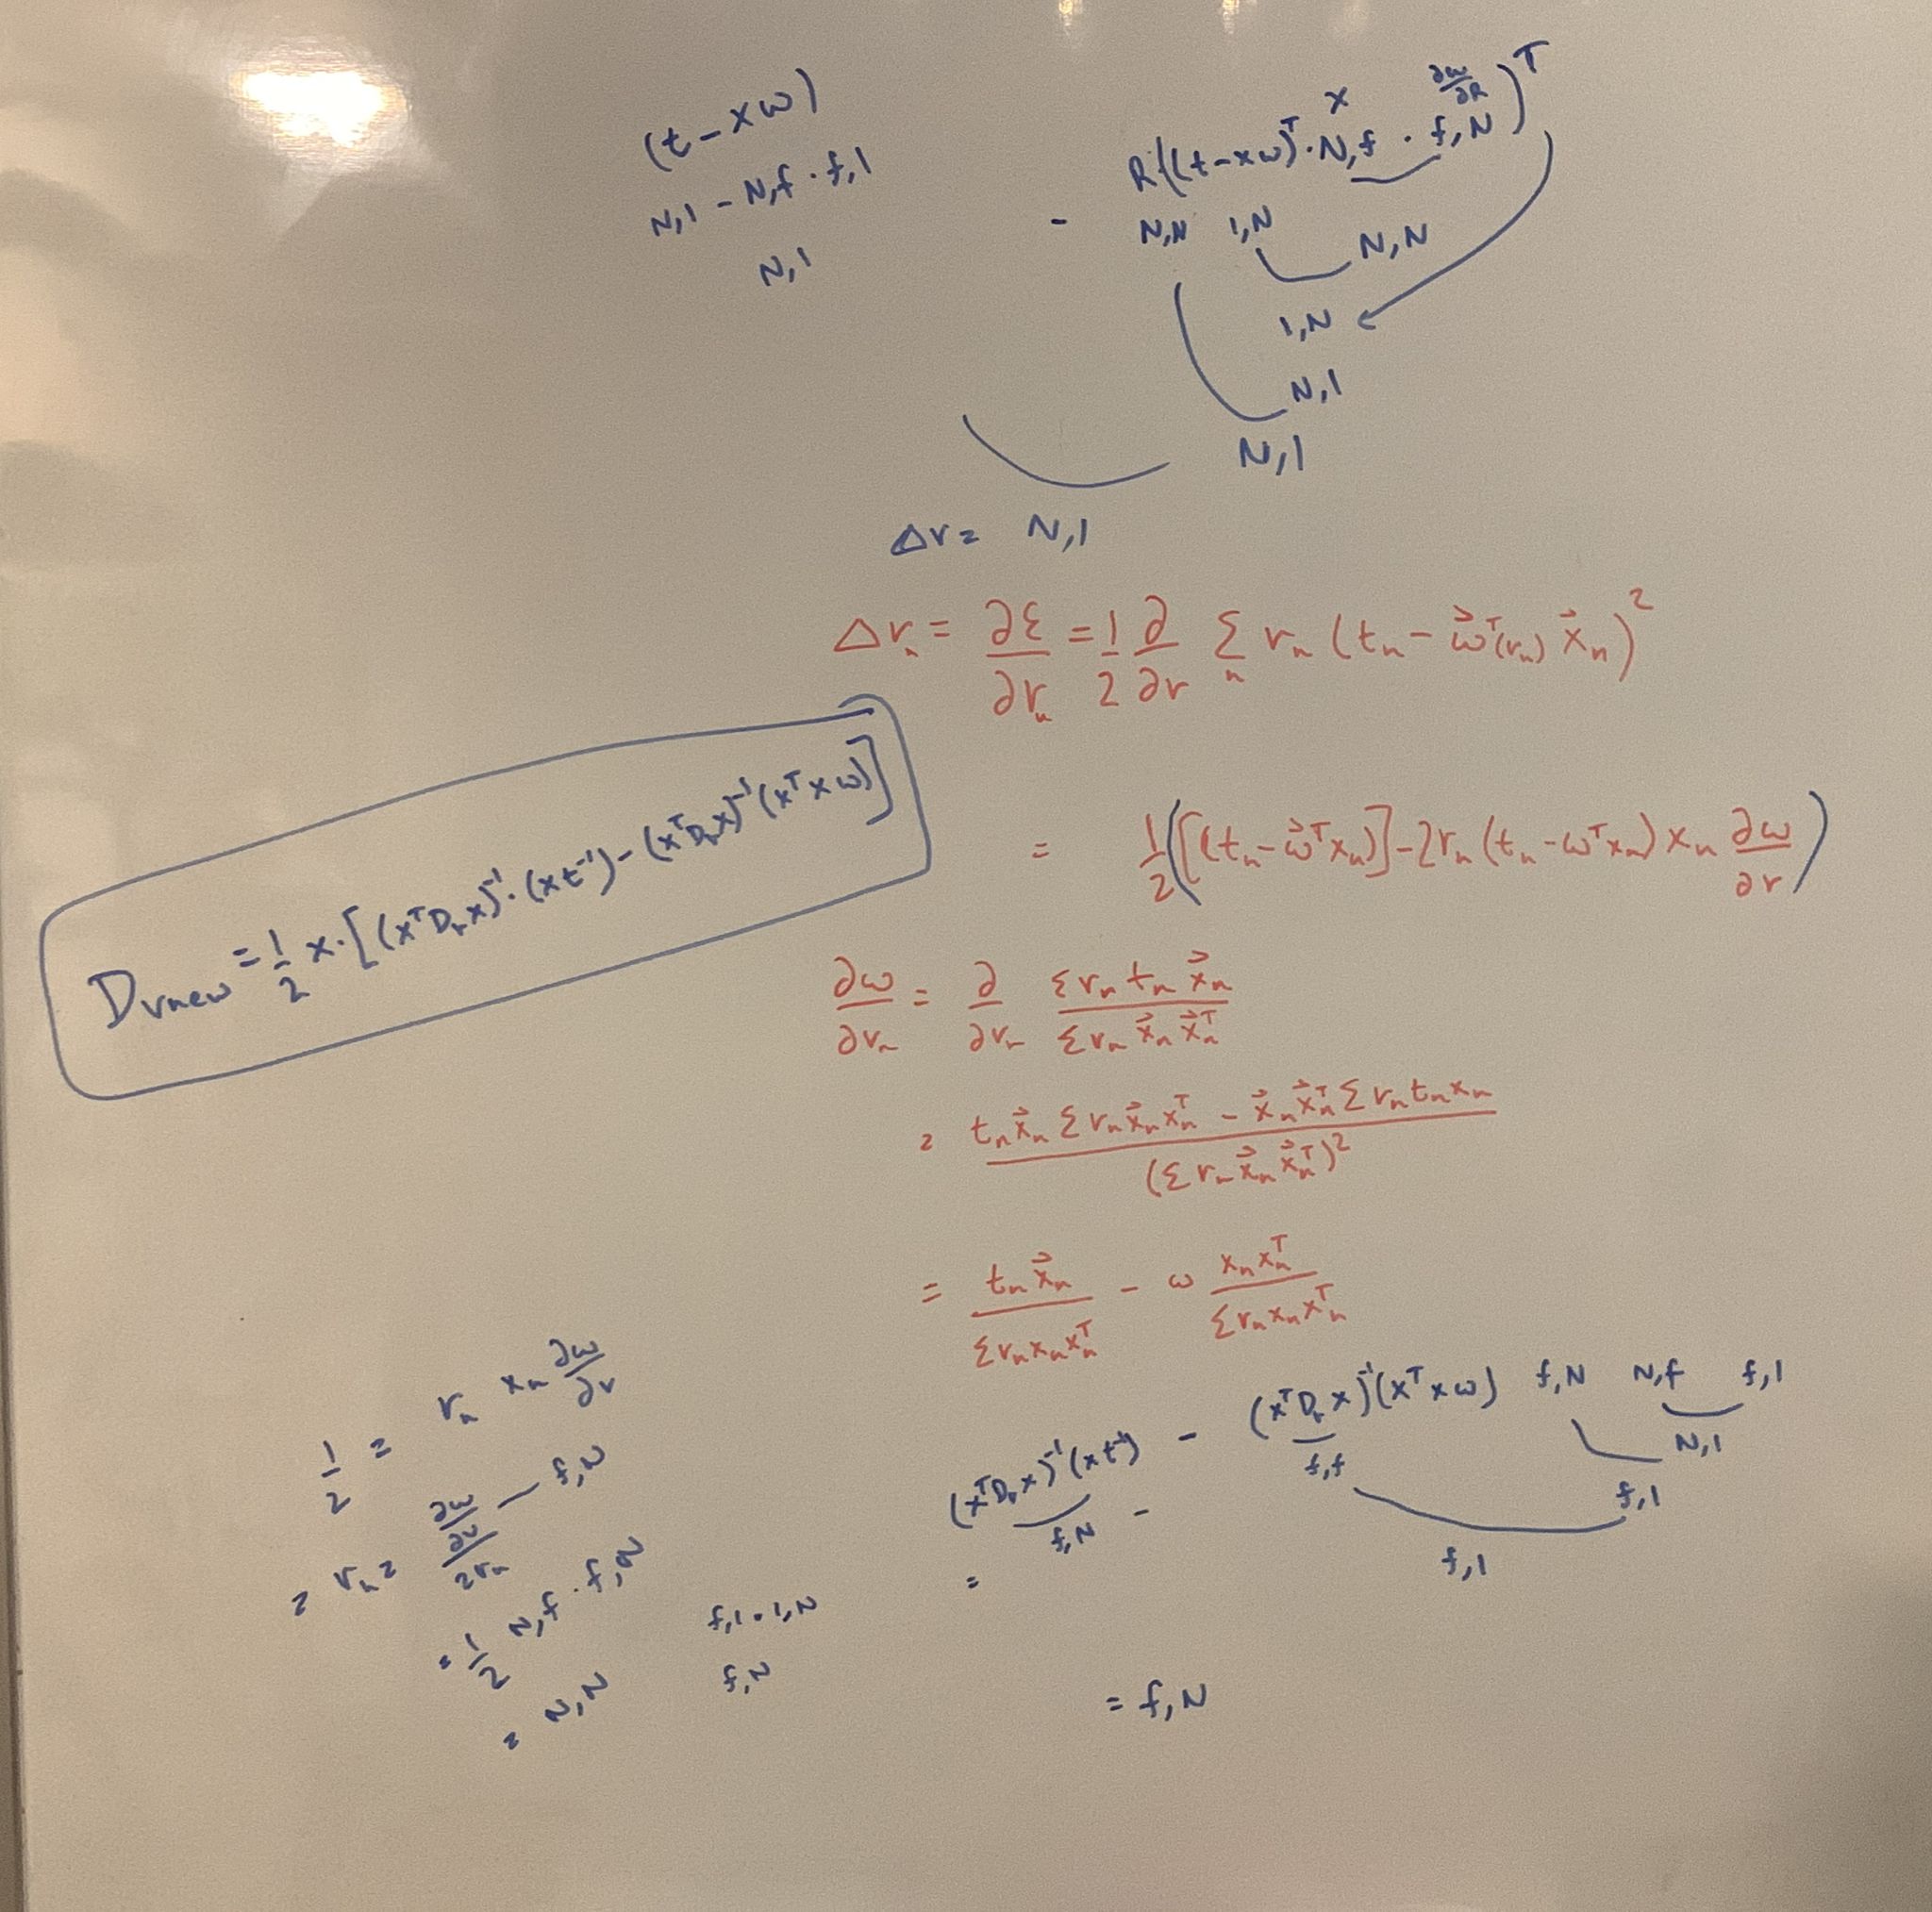 (t - xω)
N,1 - N,f · f,1
N,1
x ∂ω/∂R
- R·((t-xω)ᵀ · N,f · f,N)ᵀ
N,N 1,N
N,N
1,N
N,1
N,1
Δr = N,1
Δrₙ = ∂Ɛ/∂rₙ = 1/2 ∂/∂r Σₙ rₙ (tₙ - ω⃗ᵀ(rₙ) x⃗ₙ)²
= 1/2 ([(tₙ - ω⃗ᵀxₙ)] - 2rₙ (tₙ - ωᵀxₙ) xₙ ∂ω/∂r)
Drnew = 1/2 x·[(xᵀDᵣx)⁻¹·(xt⁻¹) - (xᵀDᵣx)⁻¹(xᵀxω)]
∂ω/∂rₙ = ∂/∂rₙ Σrₙtₙx⃗ₙ / Σrₙx⃗ₙx⃗ₙᵀ
= (tₙx⃗ₙ Σrₙx⃗ₙxₙᵀ - x⃗ₙx⃗ₙᵀ Σrₙtₙxₙ) / (Σrₙx⃗ₙx⃗ₙᵀ)²
= tₙx⃗ₙ / Σrₙxₙxₙᵀ - ω xₙxₙᵀ / Σrₙxₙxₙᵀ
1/2 = rₙ xₙ ∂ω/∂r
= rₙ = ∂ω/∂r / 2rₙ — f,N
= 1/2 N,f · f,N
= N,N
f,1 · 1,N
f,N
(xᵀDᵣx)⁻¹(xt⁻¹) - (xᵀDᵣx)⁻¹(xᵀxω) f,N N,f f,1
f,N - f,f N,1
f,1
= f,1
= f,N